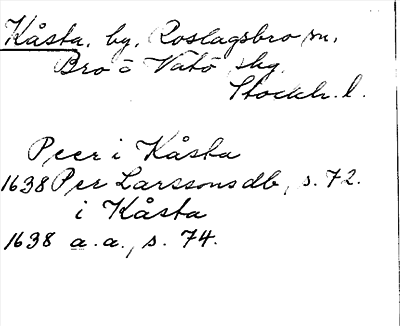 Kåsta, by, Roslagsbro sn,
Bro o Vätö skg,
Stockh. l.
Peer i Kåsta
1638 Per Larssons db, s. 72.
i Kåsta
1638 a.a., s. 74.